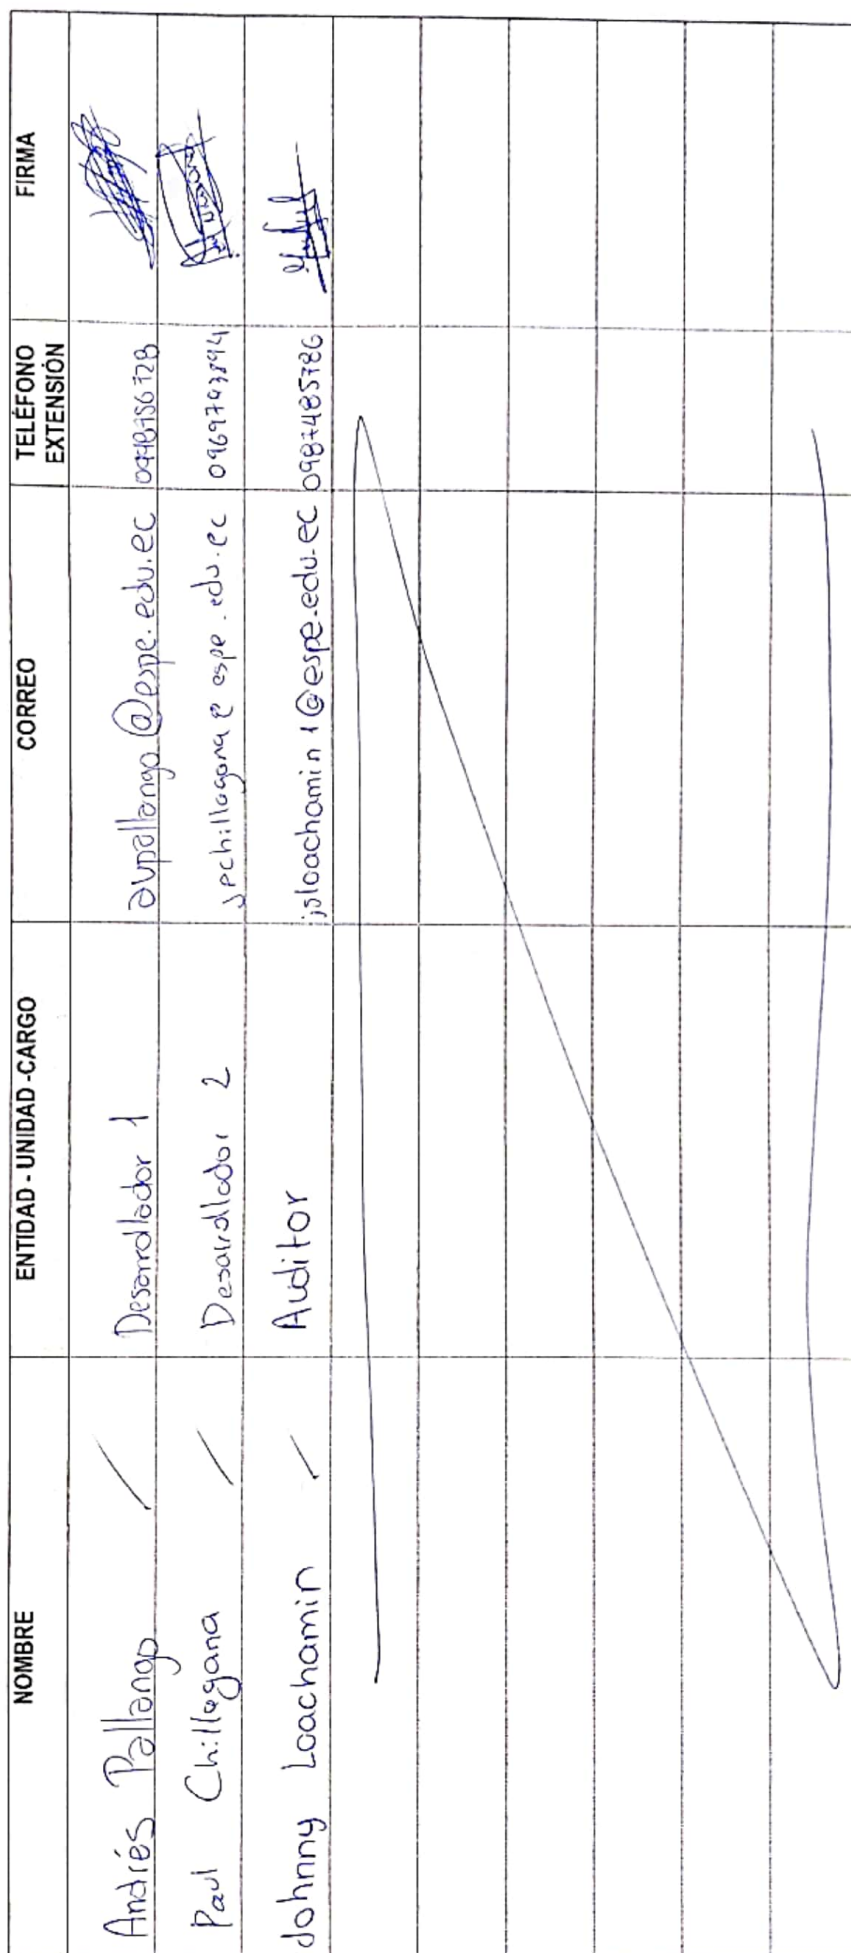 NOMBRE ENTIDAD - UNIDAD -CARGO CORREO TELÉFONO EXTENSIÓN FIRMA
Andrés Pallango Desarrollador 1 avpallango@espe.edu.ec
Paul Chillagana Desarrollador 2
Johnny Loachamin Auditor jsloachamin1@espe.edu.ec 0987485786